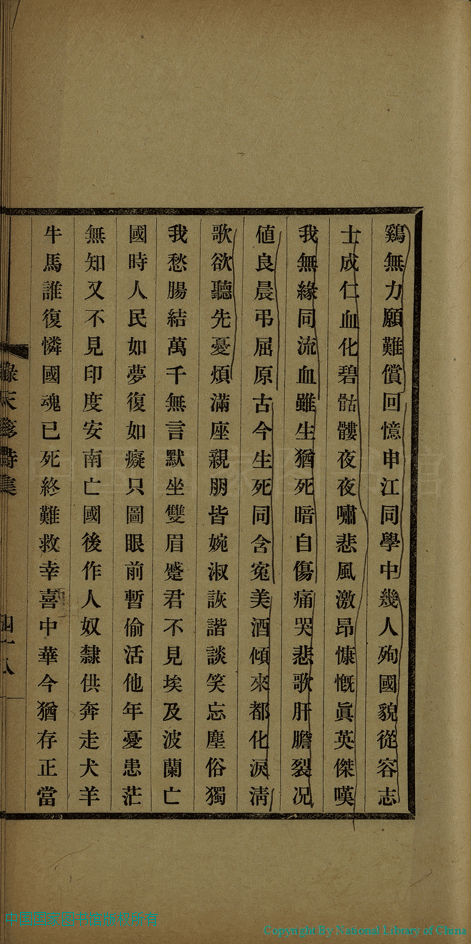 鷄無力願難償回憶申江同學中幾人殉國貌從容志
士成仁血化碧骷髏夜夜嘯悲風激昂慷慨眞英傑嘆
我無緣同流血雖生猶死暗自傷痛哭悲歌肝膽裂况
値良晨弔屈原古今生死同含寃美酒傾來都化淚淸
歌欲聽先憂煩滿座親朋皆婉淑詼諧談笑忘塵俗獨
我愁腸結萬千無言默坐雙眉蹙君不見埃及波蘭亡
國時人民如夢復如癡只圖眼前暫偷活他年憂患茫
無知又不見印度安南亡國後作人奴隸供奔走犬羊
牛馬誰復憐國魂已死終難救幸喜中華今猶存正當
天
詩集
Copyright By National Library of China